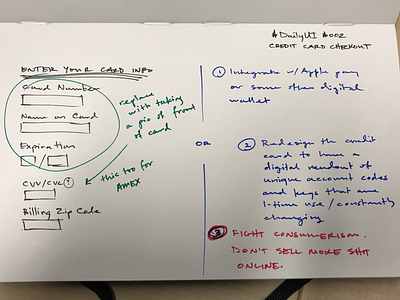 #DailyUI #002
CREDIT CARD CHECKOUT
ENTER YOUR CARD INFO
Card Number
Name on Card
Expiration
/
CVV/CVC ?
Billing Zip Code
replace
with taking
a pic of front
of card
this too for
AMEX
OR
1 Integrate w/ Apple pay
or some other digital
wallet
2 Redesign the credit
card to have a
digital readout of
unique account codes
and keys that are
1-time use / constantly
changing
3 FIGHT CONSUMERISM.
DON'T SELL MORE SHIT
ONLINE.